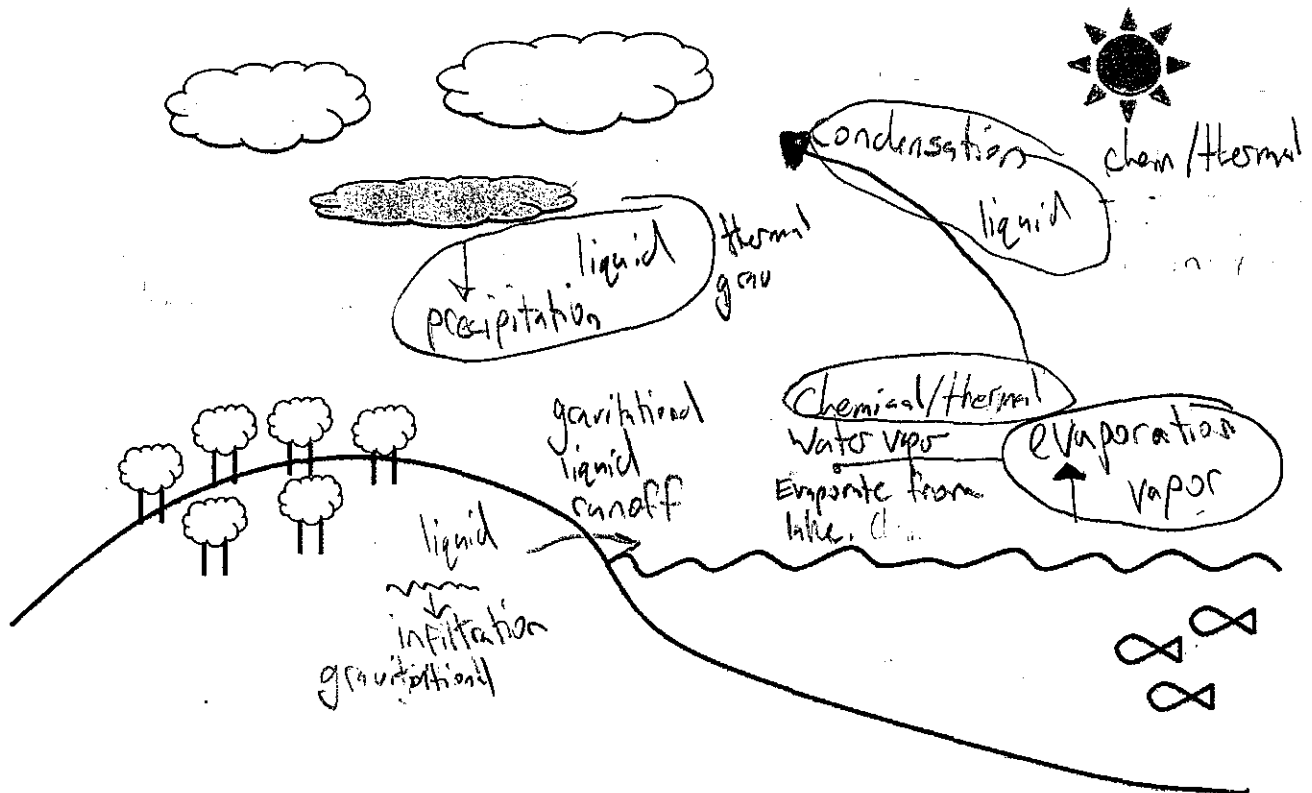 Condensation
liquid
chem/thermal
liquid
precipitation
thermal
grav
Chemical/thermal
Water vapor
Evaporate from
lake.
evaporation
vapor
gravitational
liquid
runoff
liquid
infiltration
gravitational